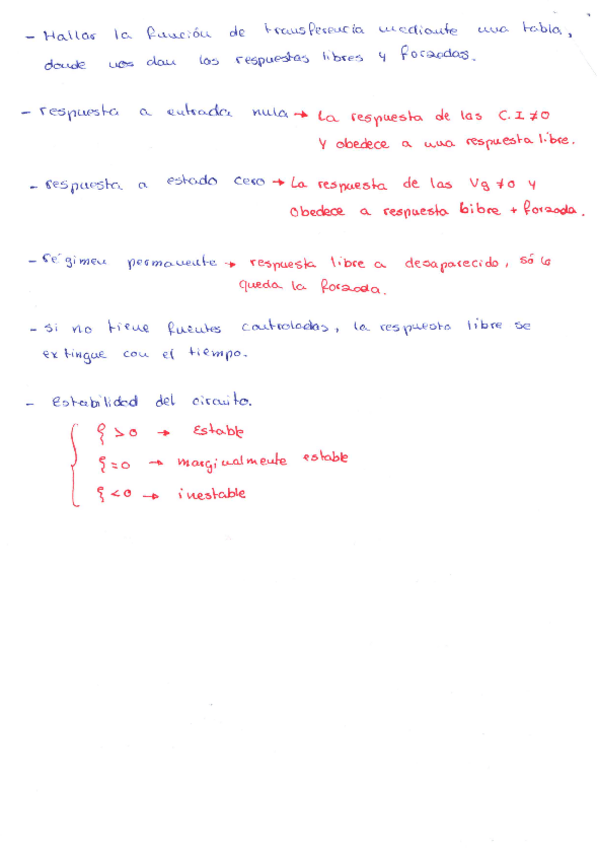 - Hallar la función de transferencia mediante una tabla,
donde nos dan las respuestas libres y forzadas.
- respuesta a entrada nula → La respuesta de las C.I ≠ 0
y obedece a una respuesta libre.
- respuesta a estado cero → La respuesta de las Vg ≠ 0 y
obedece a respuesta libre + forzada.
- régimen permanente → respuesta libre a desaparecido, sólo
queda la forzada.
- si no tiene fuentes controladas, la respuesta libre se
extingue con el tiempo.
- Estabilidad del circuito.
ξ > 0 → Estable
ξ = 0 → marginalmente estable
ξ < 0 → inestable